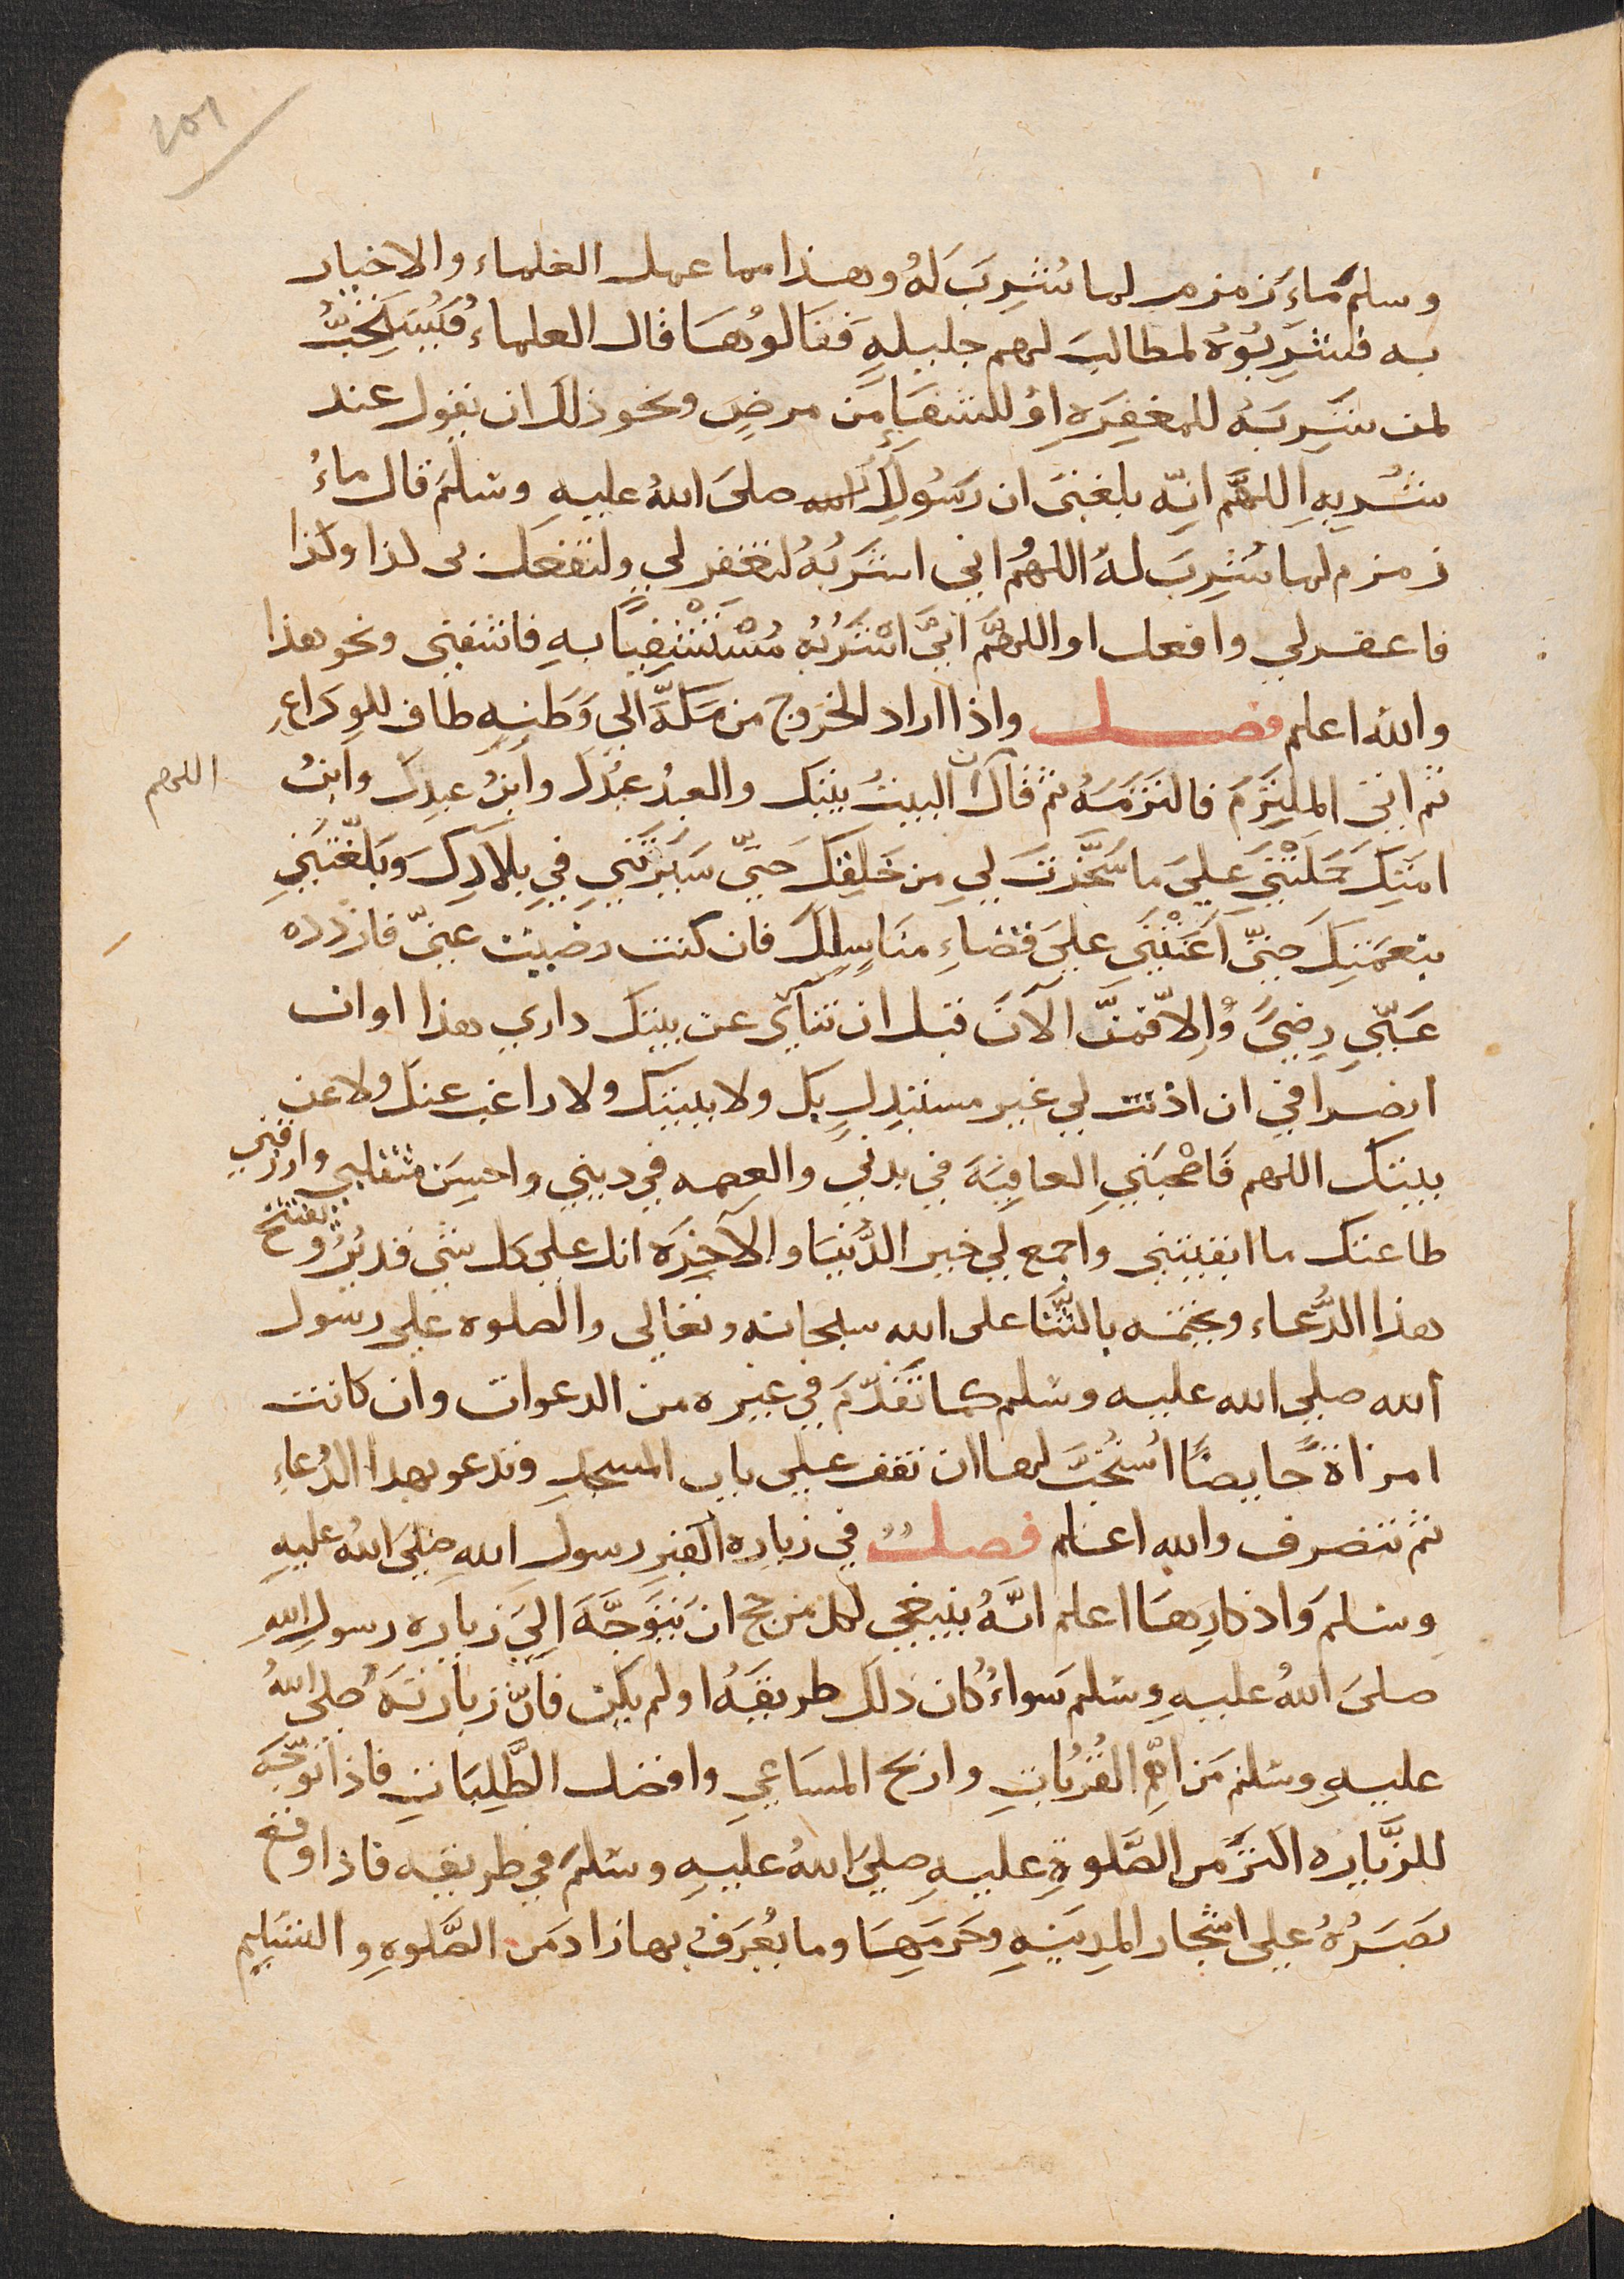 ١٥١
وسلم ماء زمزم لما شُرِبَ لهُ وهذا مما عمل العلماء والاخيار
به فشربوهُ لمطالبَ لهم جليلهٍ فنالوُها قال العلماءُ فيُستحَبُّ
لمن شرِبهُ للمغفِرَهِ اوْ للشفاءِ من مرضٍ ونحو ذلك ان يقول عند
شُربِهِ اللهمَّ انّه بلغني ان رَسُولك الله صلى اللهُ عليهِ وسلَم قال ماءُ
زمزم لما شُرِبَ لهُ اللهُم اني اشرَبُهُ لتغفر لي ولتفعل بى كذا وكذا
فاغفر لي وافعل او اللهمَّ انيَّ اشْرَبُهُ مُسْتَشْفِيًا بهِ فاشفنى ونحو هذا
والله اعلم فصل واذا اراد الخروج من مكّة الى وَطنِهِ طاف للودَاعِ
ثم اتى الملتزَمَ فالتزمهُ ثم قال البيتُ بيتك والعبدُ عبدك وابنُ عبدِك وابنُ
اللهم
امَتِكَ حَمَلتْنَي عليَ ما سَخَّرتَ لي من خَلقِك حَتيّ سَيرْتَني في بلادِكَ وبَلّغتَني
بنعمَتِكَ حتىَّ اَعَنْتَني عليَ قضاءِ مناسِكك فان كنت رضيت عنىّ فازدد
عَنّي رِضىً وَالاّ فمنَّ الآنَ قبل ان تنآى عن بيتك داري هذا اوان
انصرافي ان اذنت لي غير مستبدلٍ بك ولا ببيتك ولا راغب عنك ولا عن
بيتك اللهم فَاصْحبَني العافِيَةَ في بدني والعصمه في ديني واحسِن منقلبي وارزقني
طاعتك ما ابقيتني واجمع لي خير الدُّنيَا والآخِرَه انك على كل شئ قديرٌ ويفتتح
هذا الدُّعاء ويختمه بالثَّنا على الله سبحانه وتعالى والصلوه على رسول
الله صلي الله عليه وسلم كما تقَدّمَ في غيره من الدعوات وان كانت
امرَاةً حايضًا اُستُحبَّ لها ان تقف على باب المسجدِ وتدعو بهذا الدُعاءِ
ثم تنصرف والله اعلم فصل في زيارة القبر رسول اللهِ صلىَ اللهُ عليهِ
وسلم وَاذكارِهَا اعلم انَّهُ ينبغي لكل من حج ان يتوَجَّهَ اليَ زيارة رسولِ اللهِ
صلىَ اللهُ عليهِ وسَلم سواءُ كان ذلك طريقَهُ او لم يكن فانّ زيارتهَ صلى اللهُ
عليهِ وسَلم مَن اهمِّ القُرُباتِ واربح المسَاعي وافضل الطَّلِباتِ فاذا توجَّهَ
للزَّيارة اكثرَ من الصَّلوةِ عليهِ صليَ اللهُ عليهِ وسَلمَ في طريقه فاذا وقع
بَصَرُهُ على اشجار المدينهِ وحَرمَهِا وما يُعرَفُ بها زاد من الصَّلوهِ والتسَليِم